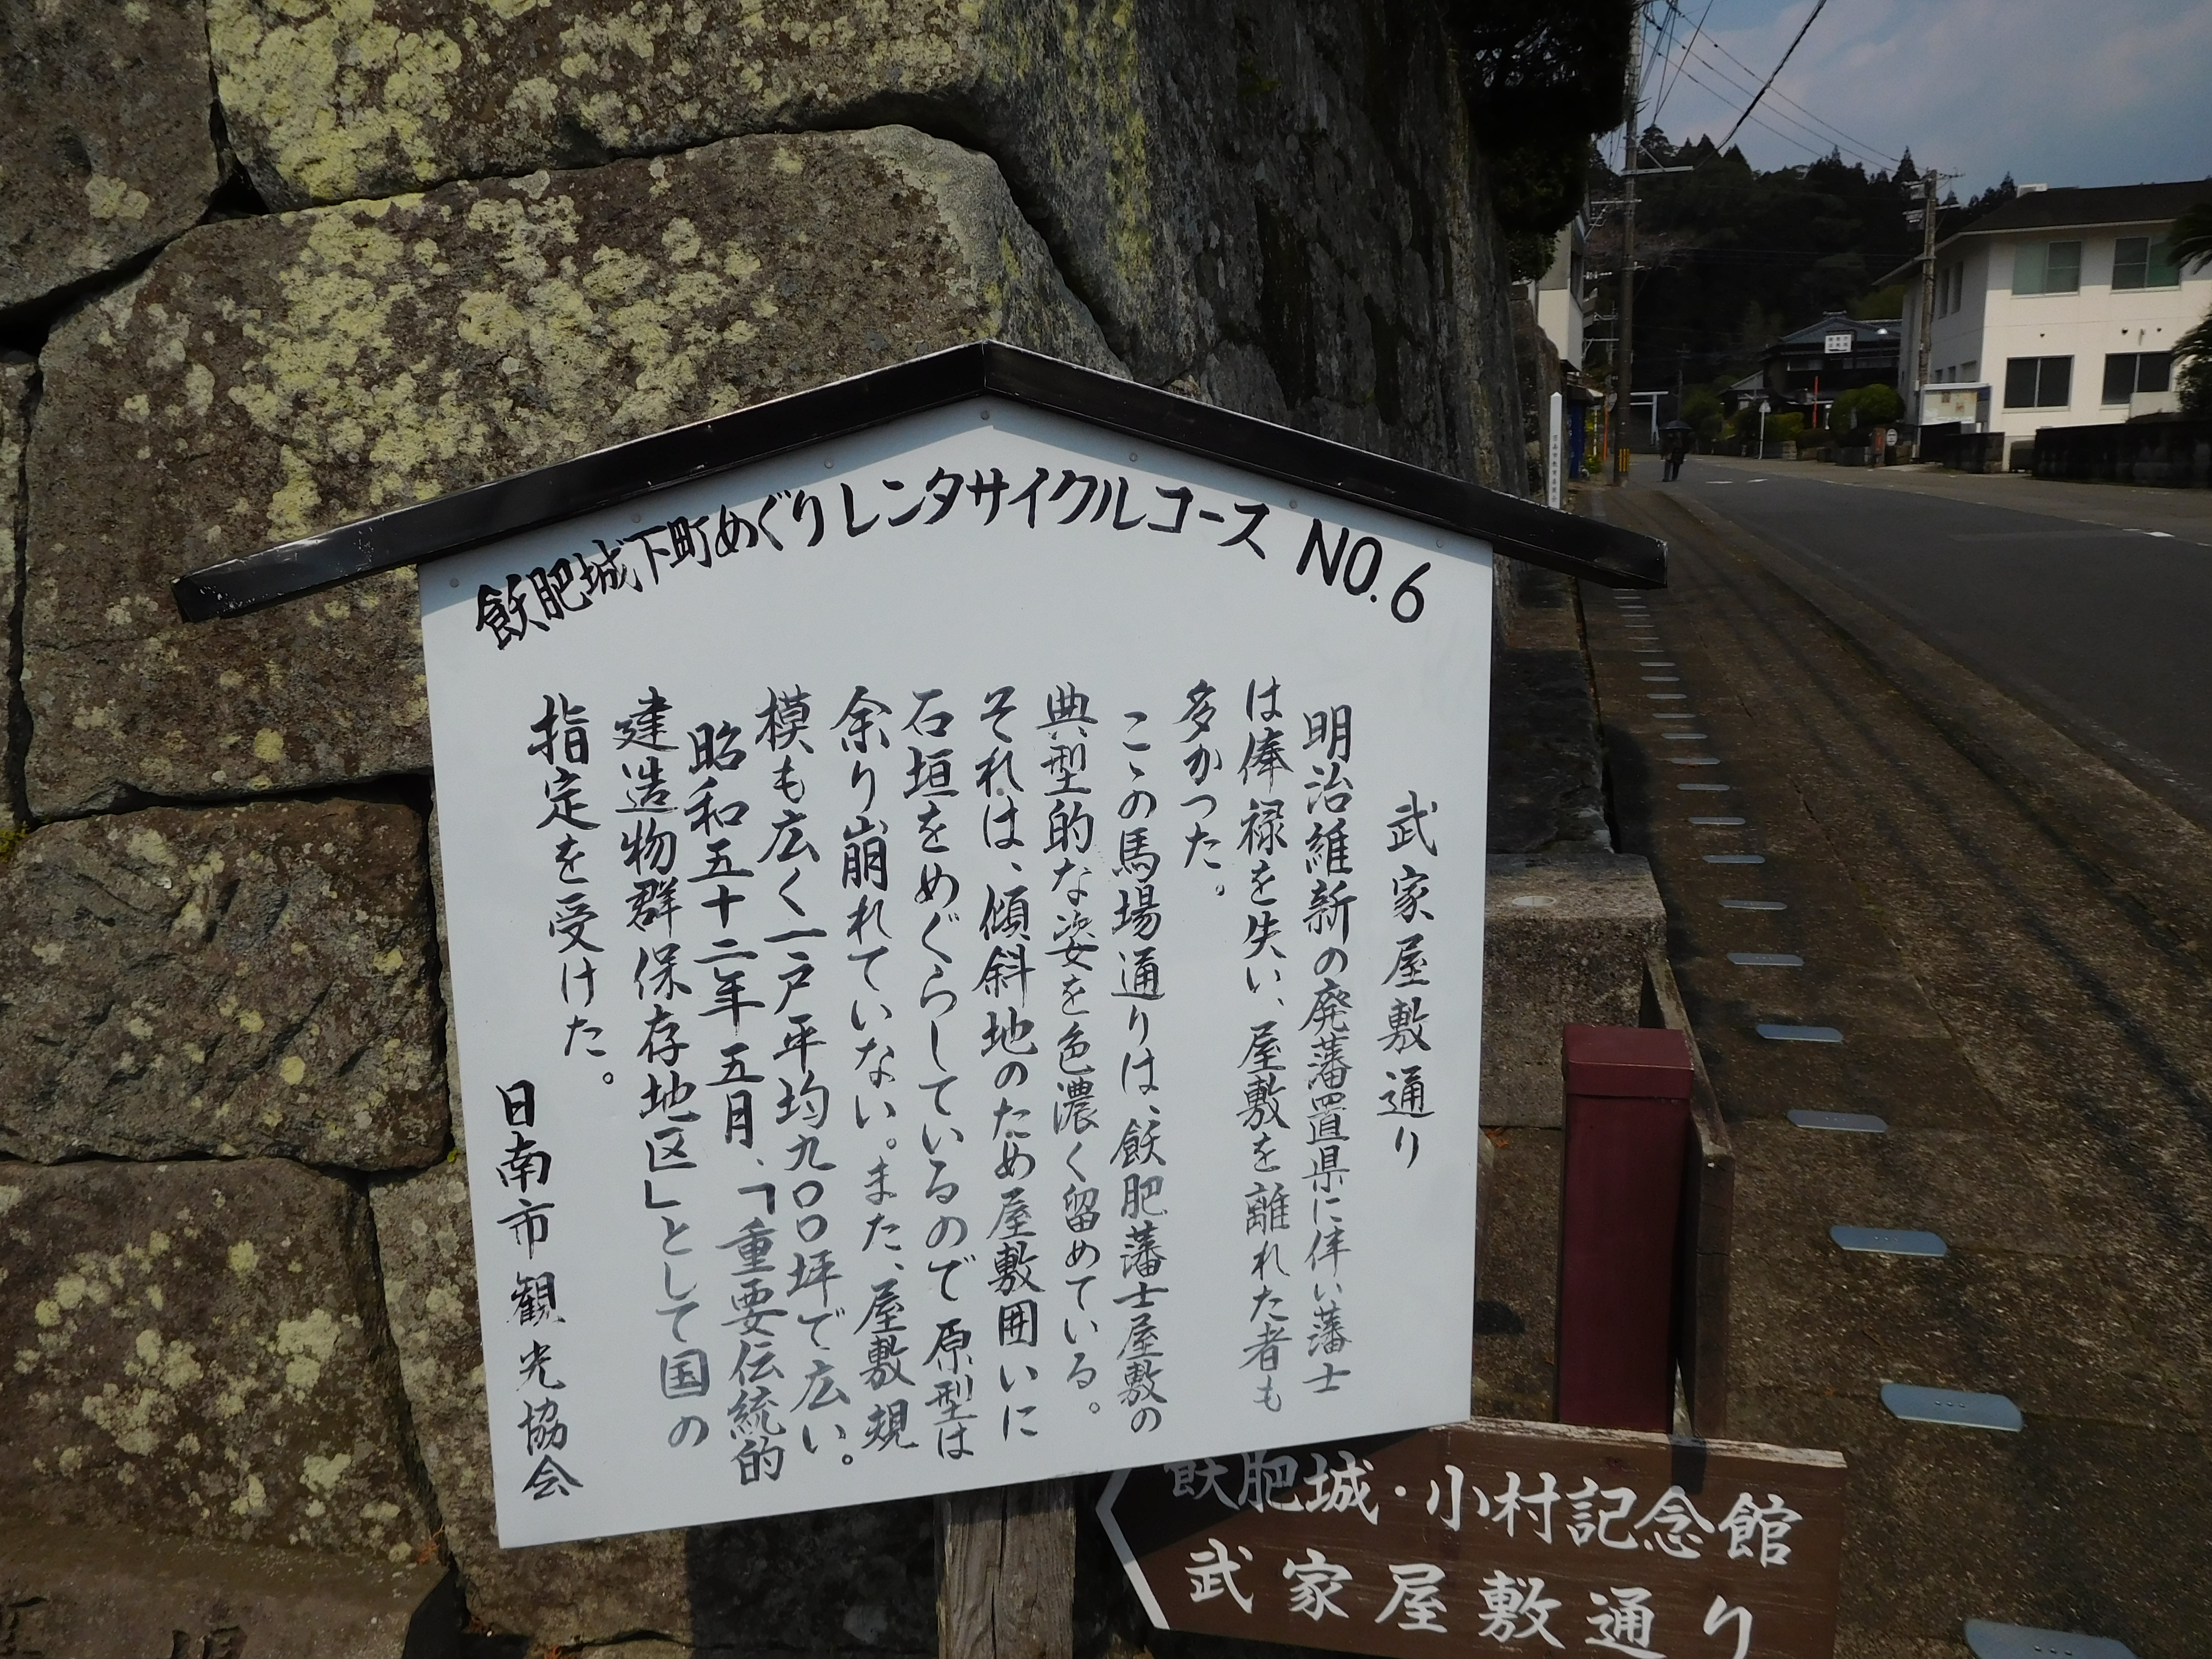 飫肥城下町めぐりレンタサイクルコース NO.6
武家屋敷通り
明治維新の廃藩置県に伴い藩士
は俸禄を失い、屋敷を離れた者も
多かつた。
こゝの馬場通りは、飫肥藩士屋敷の
典型的な姿を色濃く留めている。
それは、傾斜地のため屋敷囲いに
石垣をめぐらしているので原型は
余り崩れていない。また、屋敷規
模も広く一戸平均九〇〇坪で広い。
昭和五十二年五月、「重要伝統的
建造物群保存地区」として国の
指定を受けた。
日南市観光協会
飫肥城・小村記念館
武家屋敷通り